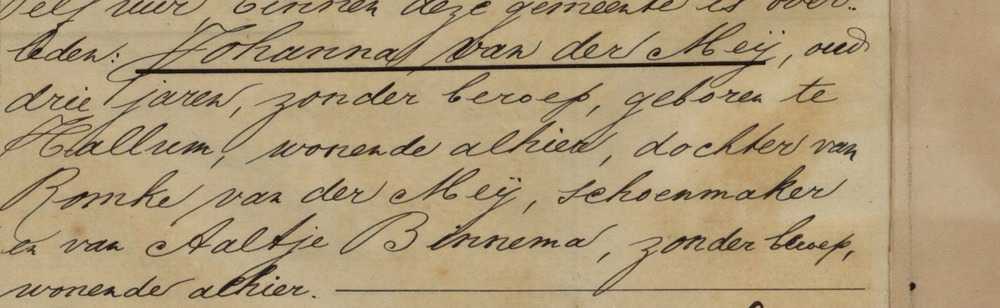 elf uur binnen deze gemeente is over-
leden: Johanna van der Meij, oud
drie jaren, zonder beroep, geboren te
Hallum, wonende alhier, dochter van
Romke van der Meij, schoenmaker
en van Aaltje Binnema, zonder beroep,
wonende alhier.